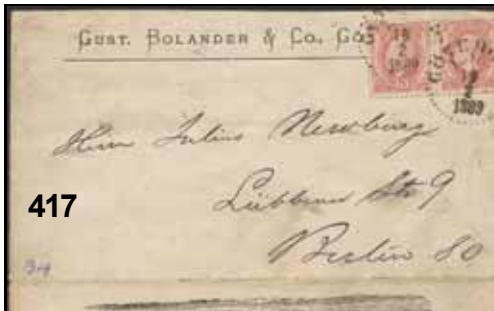 GUST. BOLANDER & Co. GÖ
19
2
1889
GÖTEB
19
2
1889
Herrn Julius Newburg
Lübbener Str 9
Berlin SO
417
34